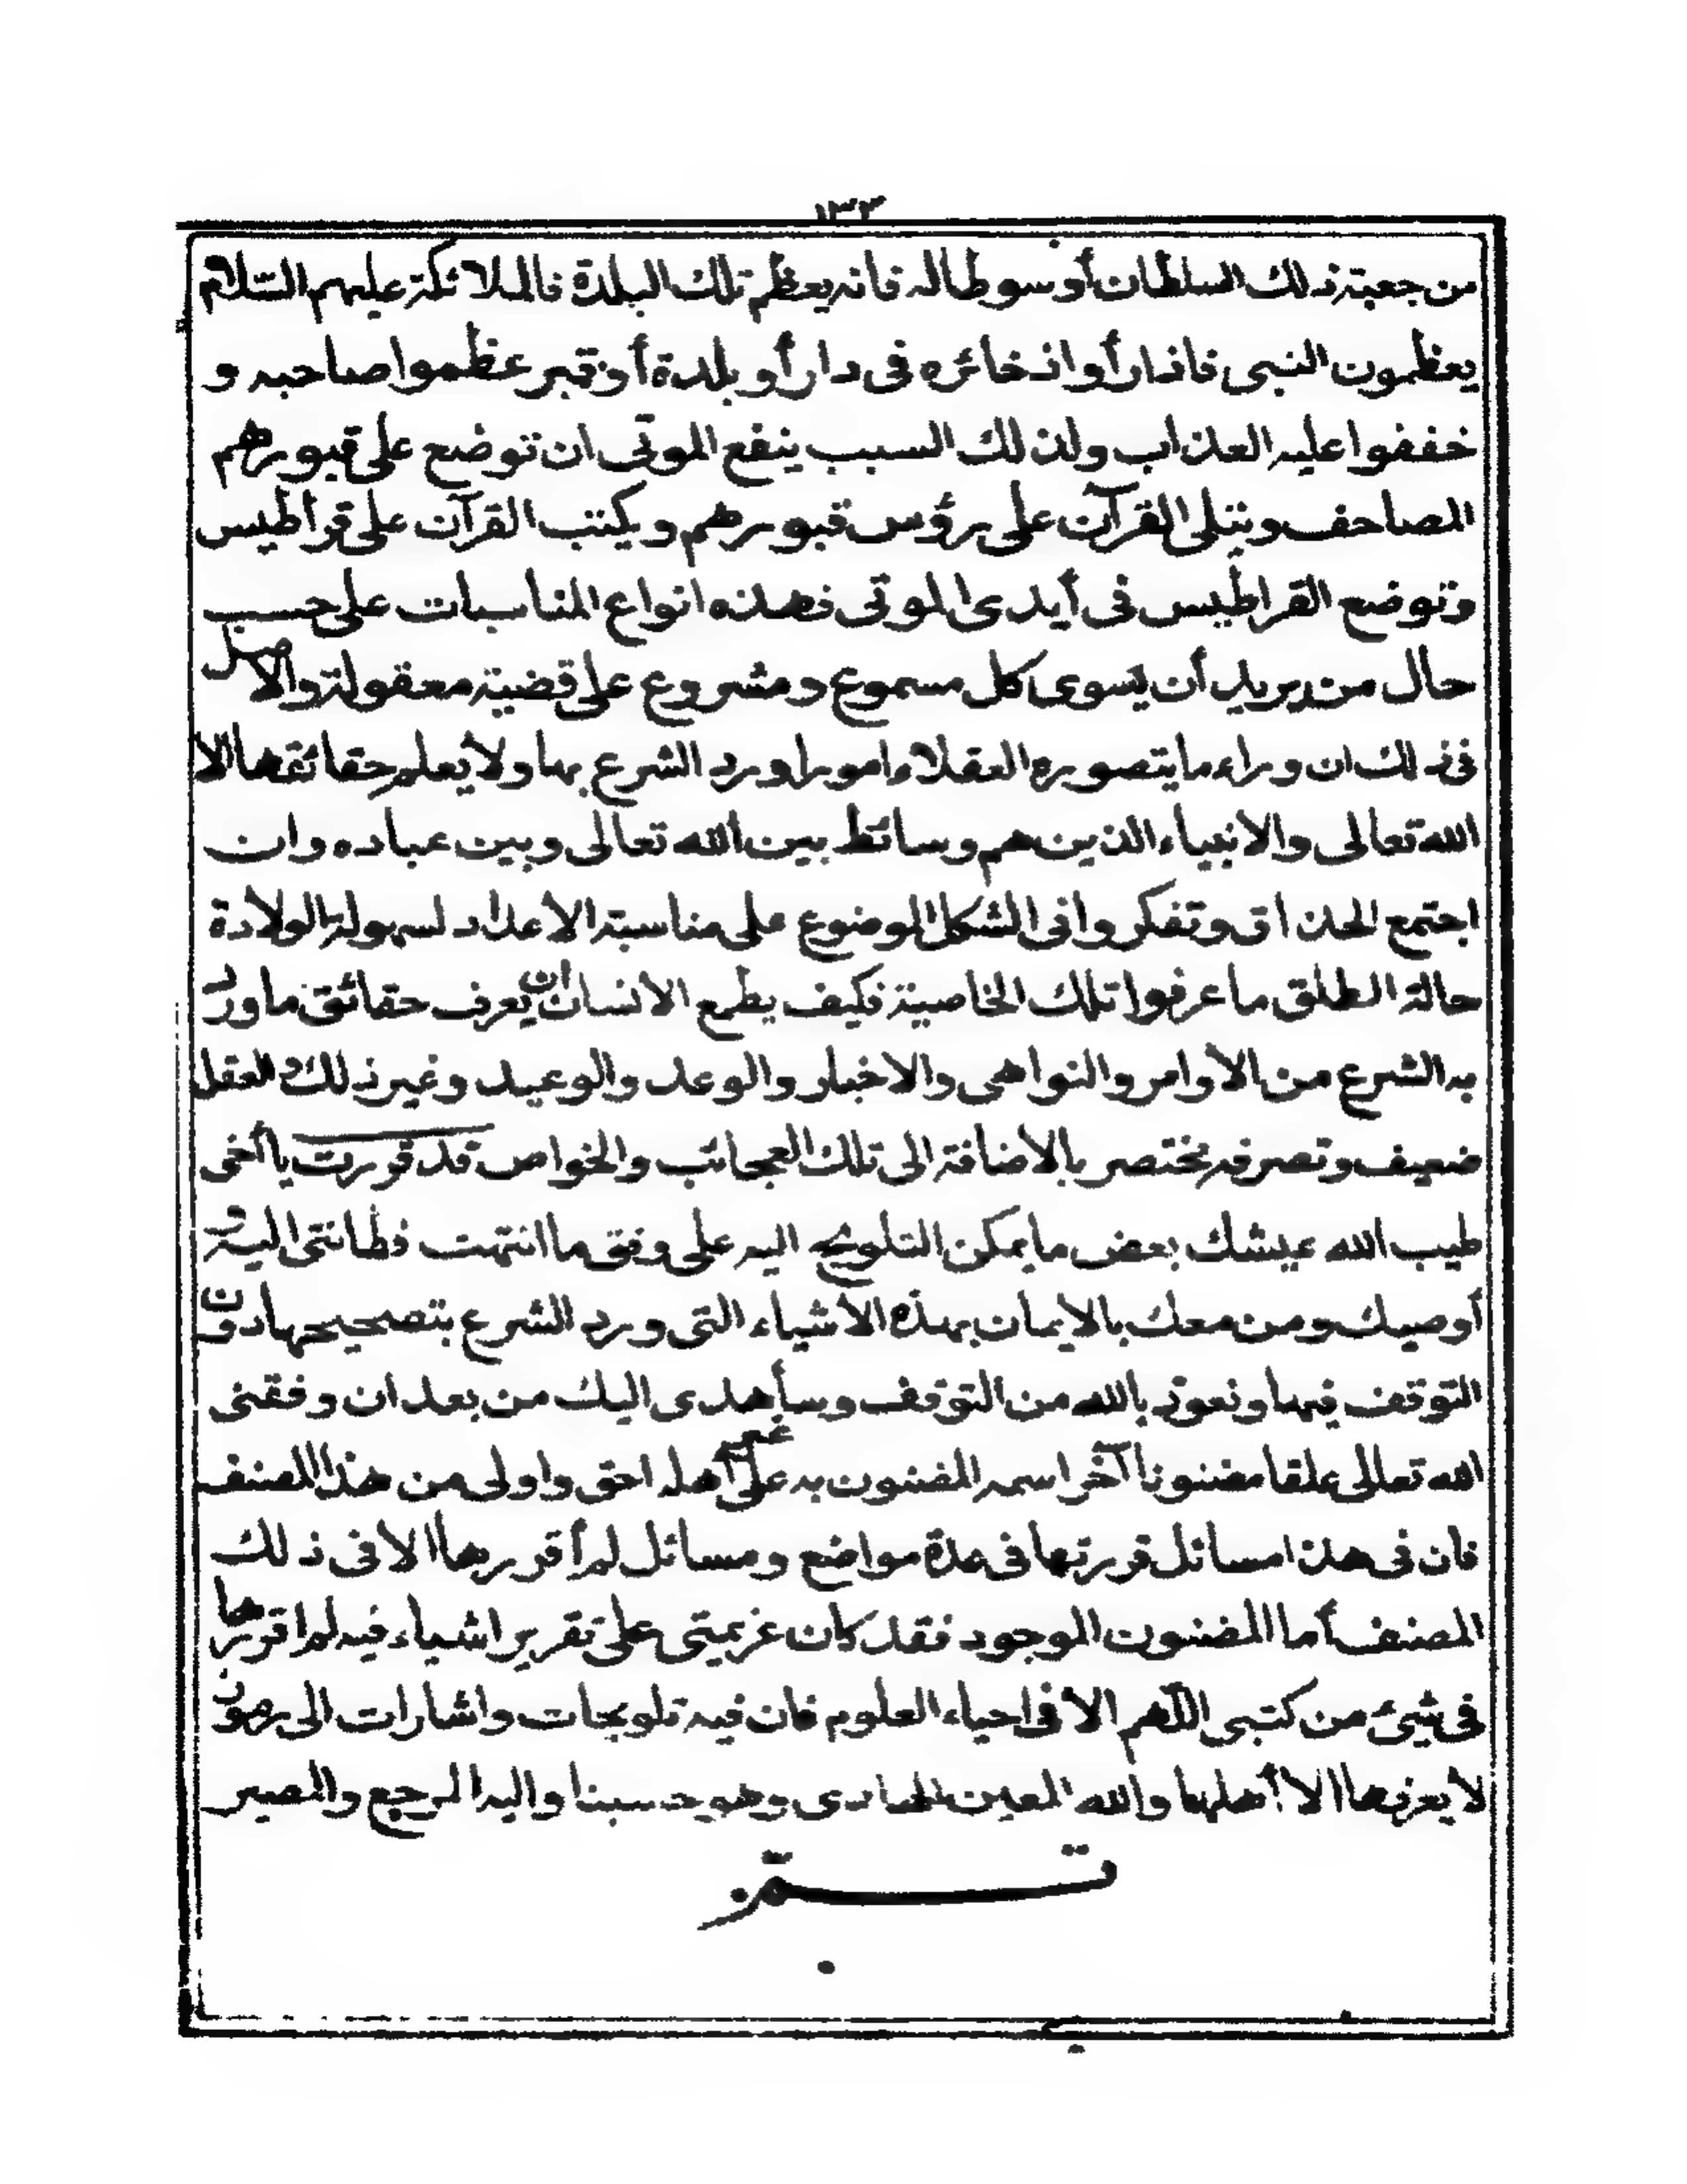 ١٣٣
من جعبة ذلك السلطان أو سوطا له فانه يعظم تلك البلدة فالملائكة عليهم السّلام
يعظمون النبى فاذا رأوا ذخائره فى دار أو بلدة أو قبر عظموا صاحبه و
خففوا عليه العذاب ولذلك السبب ينفع الموتى ان توضع على قبورهم
المصاحف ويتلى القرآن على رؤس قبورهم ويكتب القرآن على قراطيس
وتوضع القراطيس فى أيدى الموتى فهذه انواع المناسبات على حسب
حال من يريد أن يسوى كل مسموع ومشروع على قضية معقولة والاصل
فى ذلك ان وراء ما يتصوره العقلاء امورا ورد الشرع بها ولا يعلم حقائقها الا
الله تعالى والانبياء الذين هم وسائط بين الله تعالى وبين عباده وان
اجتمع الحذاق وتفكروا فى الشكل الموضوع على مناسبة الاعداد لسهولة الولادة
حالة الطلق ما عرفوا تلك الخاصية فكيف يطمع الانسان أن يعرف حقائق ما ورد
به الشرع من الاوامر والنواهى والاخبار والوعد والوعيد وغير ذلك والعقل
ضعيف وتصرفه مختصر بالاضافة الى تلك العجائب والخواص قد قررت يا أخى
طيب الله عيشك بعض ما يمكن التلويح اليه على وفق ما انتهت فطانتى اليه و
أوصيك ومن معك بالايمان بهذه الاشياء التى ورد الشرع بتصحيحها دون
التوقف فيها ونعوذ بالله من التوقف وسأهدى اليك من بعد ان وفقنى
الله تعالى علقا مضنونا آخر اسمه المضنون به على غير أهله احق واولى من هذا المصنف
فان فى هذا مسائل قررتها فى عدة مواضع ومسائل لم أقررها الا فى ذلك
المصنف أما المضنون الموجود فقد كان عزيمتى على تقرير اشياء فيه لم اقررها
فى شئ من كتبى اللّهم الا فى احياء العلوم فان فيه تلويحات واشارات الى رموز
لا يعرفها الا أهلها والله المعين الهادى وهو حسبنا واليه المرجع والمصير
تمّ